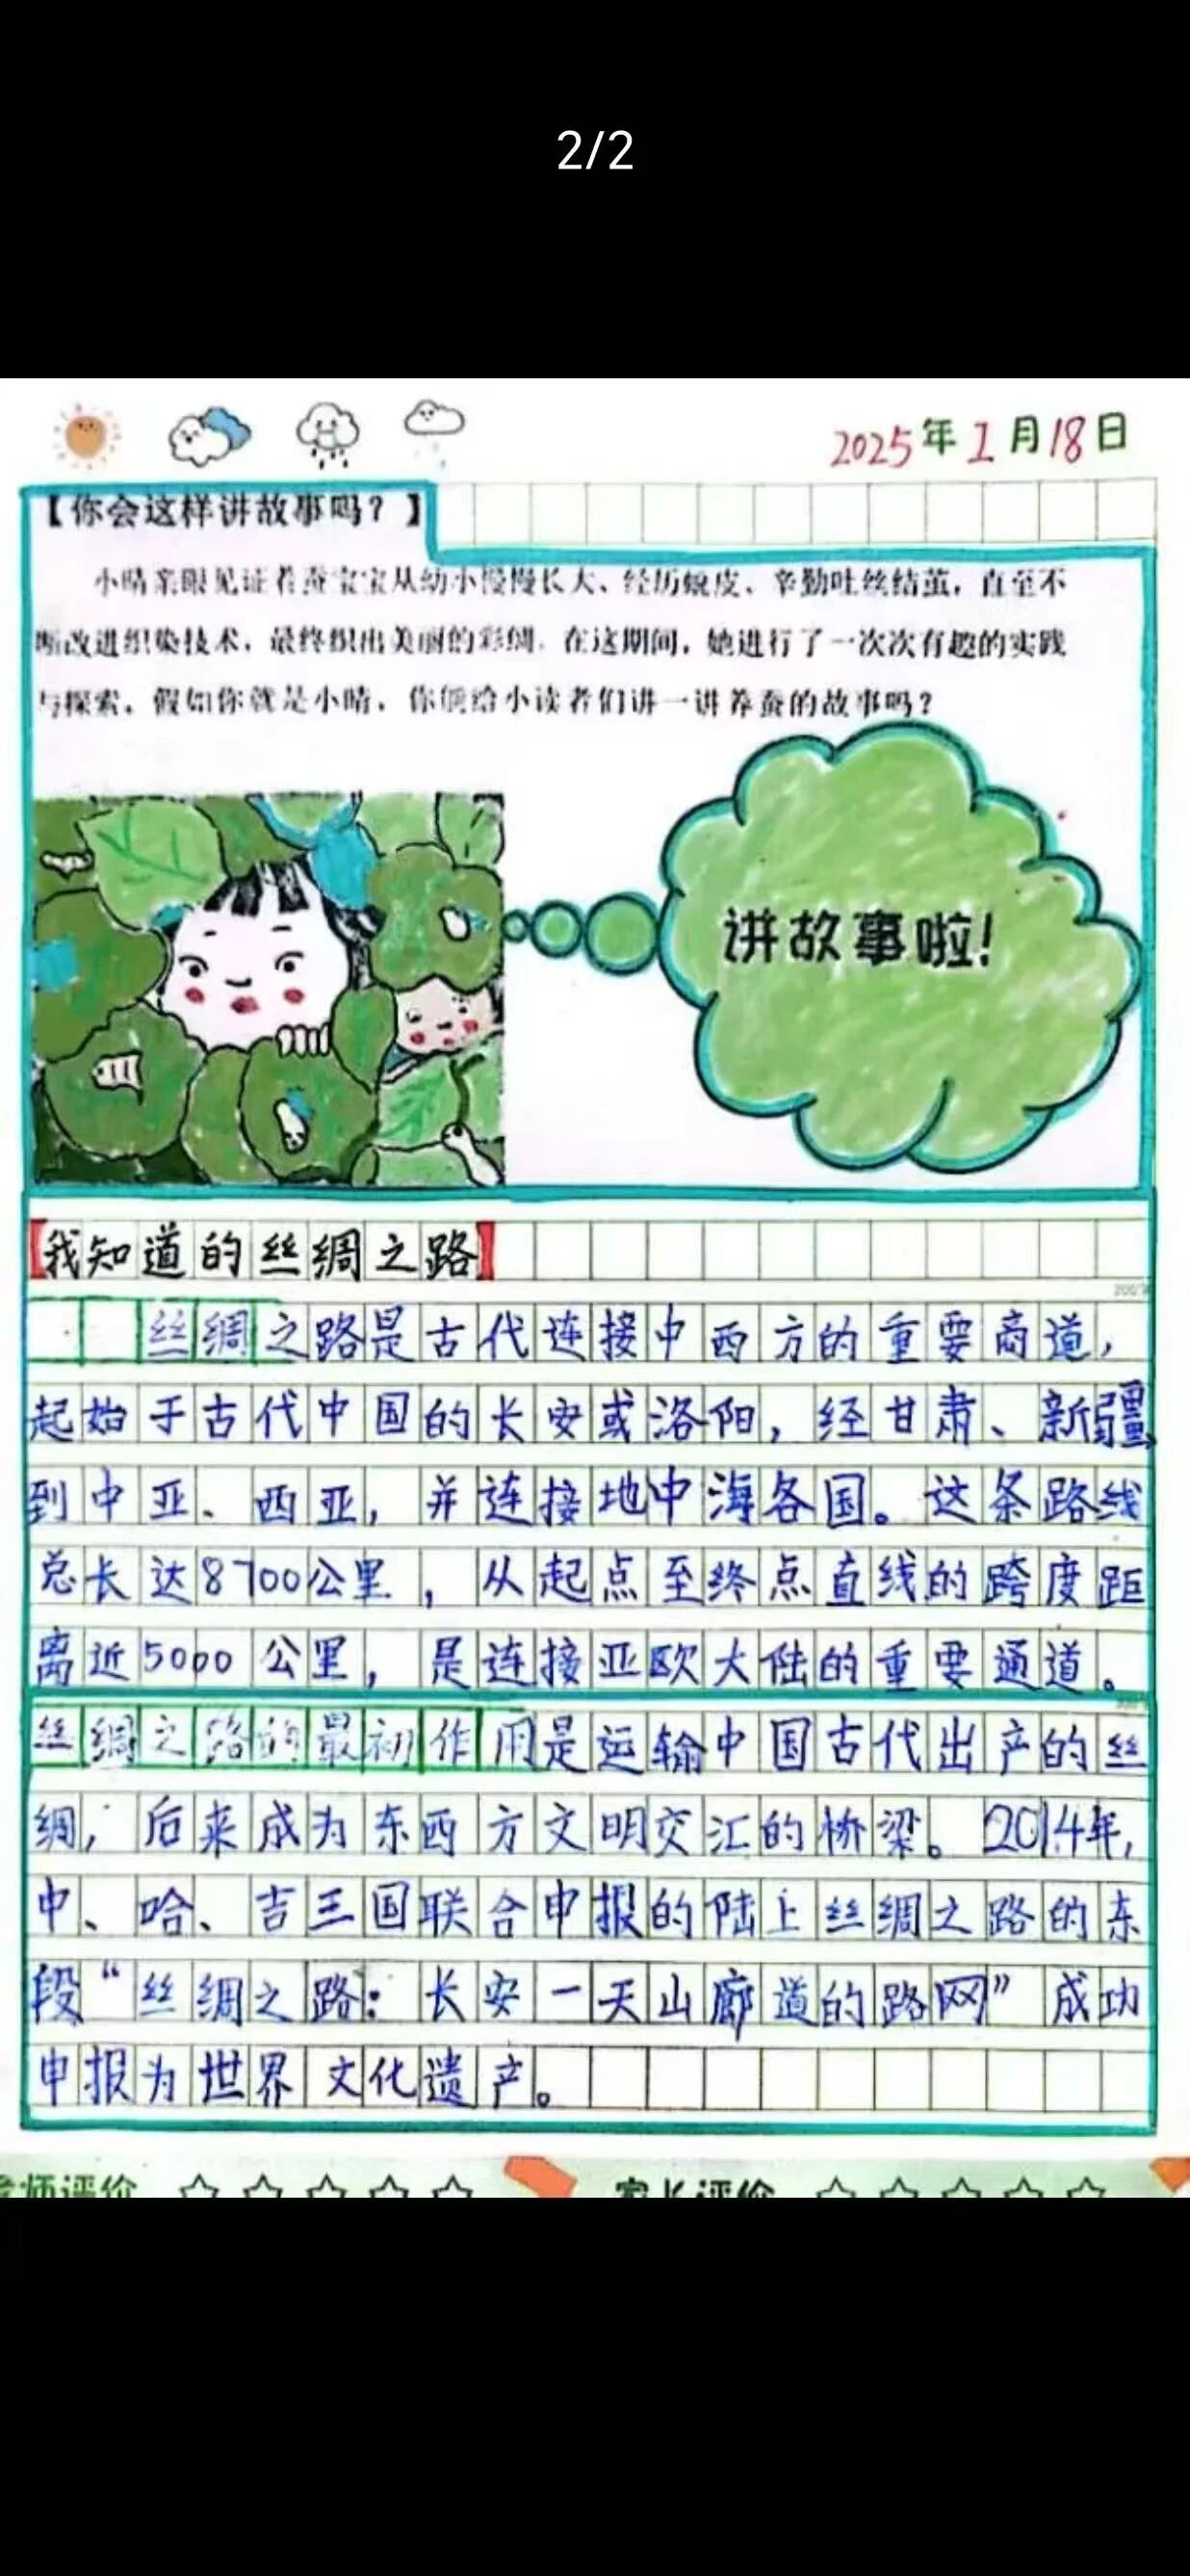 2/2
2025年1月18日
【你会这样讲故事吗？】
小晴亲眼见证着蚕宝宝从幼小慢慢长大、经历蜕皮、辛勤吐丝结茧，直至不
断改进织染技术，最终织出美丽的彩绸。在这期间，她进行了一次次有趣的实践
与探索。假如你就是小晴，你能给小读者们讲一讲养蚕的故事吗？
讲故事啦！
【我知道的丝绸之路】
丝绸之路是古代连接中西方的重要商道，
起始于古代中国的长安或洛阳，经甘肃、新疆、
到中亚、西亚，并连接地中海各国。这条路线
总长达8700公里，从起点至终点直线的跨度距
离近5000公里，是连接亚欧大陆的重要通道。
丝绸之路的最初作用是运输中国古代出产的丝
绸，后来成为东西方文明交汇的桥梁。2014年，
中、哈、吉三国联合申报的陆上丝绸之路的东
段“丝绸之路：长安一天山廊道的路网”成功
申报为世界文化遗产。
老师评价 家长评价